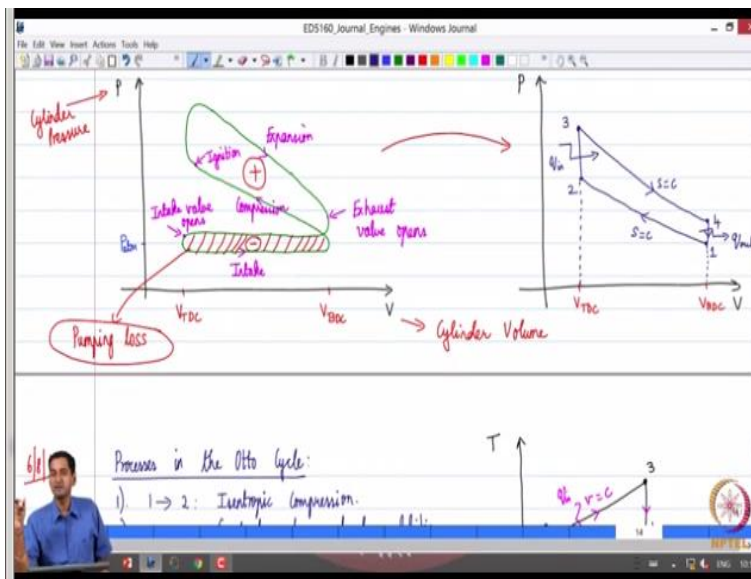 ED5160_Journal_Engines - Windows Journal
File Edit View Insert Actions Tools Help
P
Cylinder
Pressure
Ignition
Expansion
+
Compression
Intake valve
opens
Exhaust
valve opens
Patm
-
Intake
VTDC
VBDC
V
Pumping loss
Cylinder Volume
P
3
qin
2
S=C
4
S=C
qout
1
VTDC
VBDC V
6/8
Processes in the Otto Cycle:
1). 1→2: Isentropic Compression.
T
3
qin
v=c
NPTEL
ENG